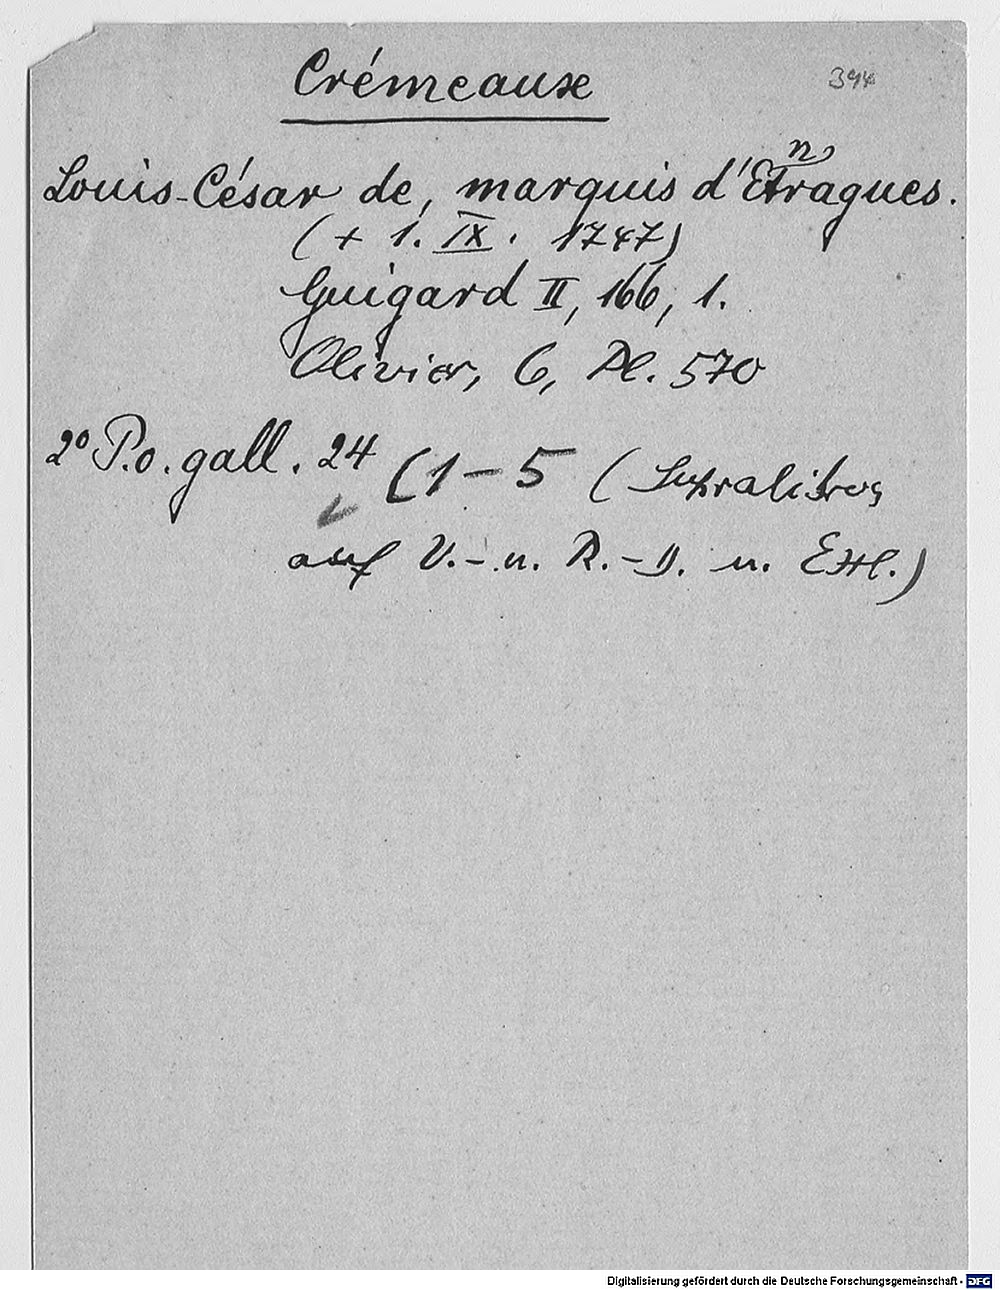 Crémeaux
394
Louis-César de, marquis d'Entragues.
(+ 1. IX. 1747)
Guigard II, 166, 1.
Olivier, 6, Pl. 570
2° P.o. gall. 24 (1-5 (Supralibros
auf V.- u. R.-D. u. Exl.)
Digitalisierung gefördert durch die Deutsche Forschungsgemeinschaft - DFG